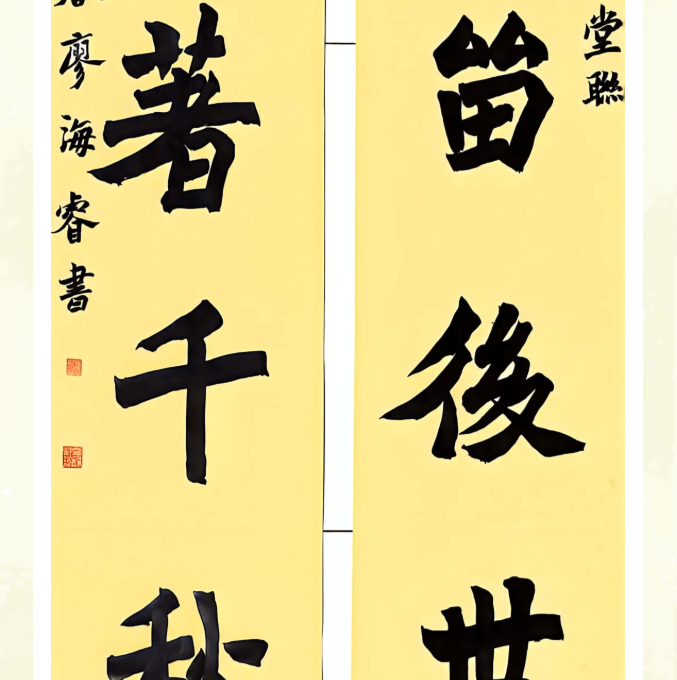 堂聯
留後世
著千秋
廖海睿書